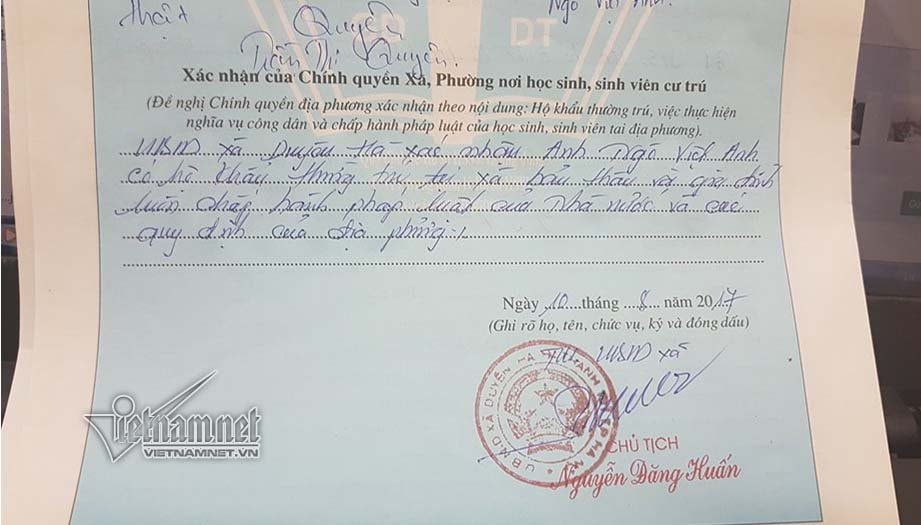 Ngô Việt Anh
thật
Quyên
ĐT
Trần Thị Quyên.
Xác nhận của Chính quyền Xã, Phường nơi học sinh, sinh viên cư trú
(Đề nghị Chính quyền địa phương xác nhận theo nội dung: Hộ khẩu thường trú, việc thực hiện
nghĩa vụ công dân và chấp hành pháp luật của học sinh, sinh viên tai địa phương).
UBND xã Duyên Hà xác nhận Anh Ngô Việt Anh
có hộ khẩu thường trú tại xã bản thân và gia đình
luôn chấp hành pháp luật của Nhà nước và các
quy định của địa phương./.
Ngày 10 tháng 8 năm 2017
(Ghi rõ họ, tên, chức vụ, ký và đóng dấu)
TM UBND xã
U.B.N.D XÃ DUYÊN HÀ
CHỦ TỊCH
Nguyễn Đăng Huấn
vietnamnet
VIETNAMNET.VN